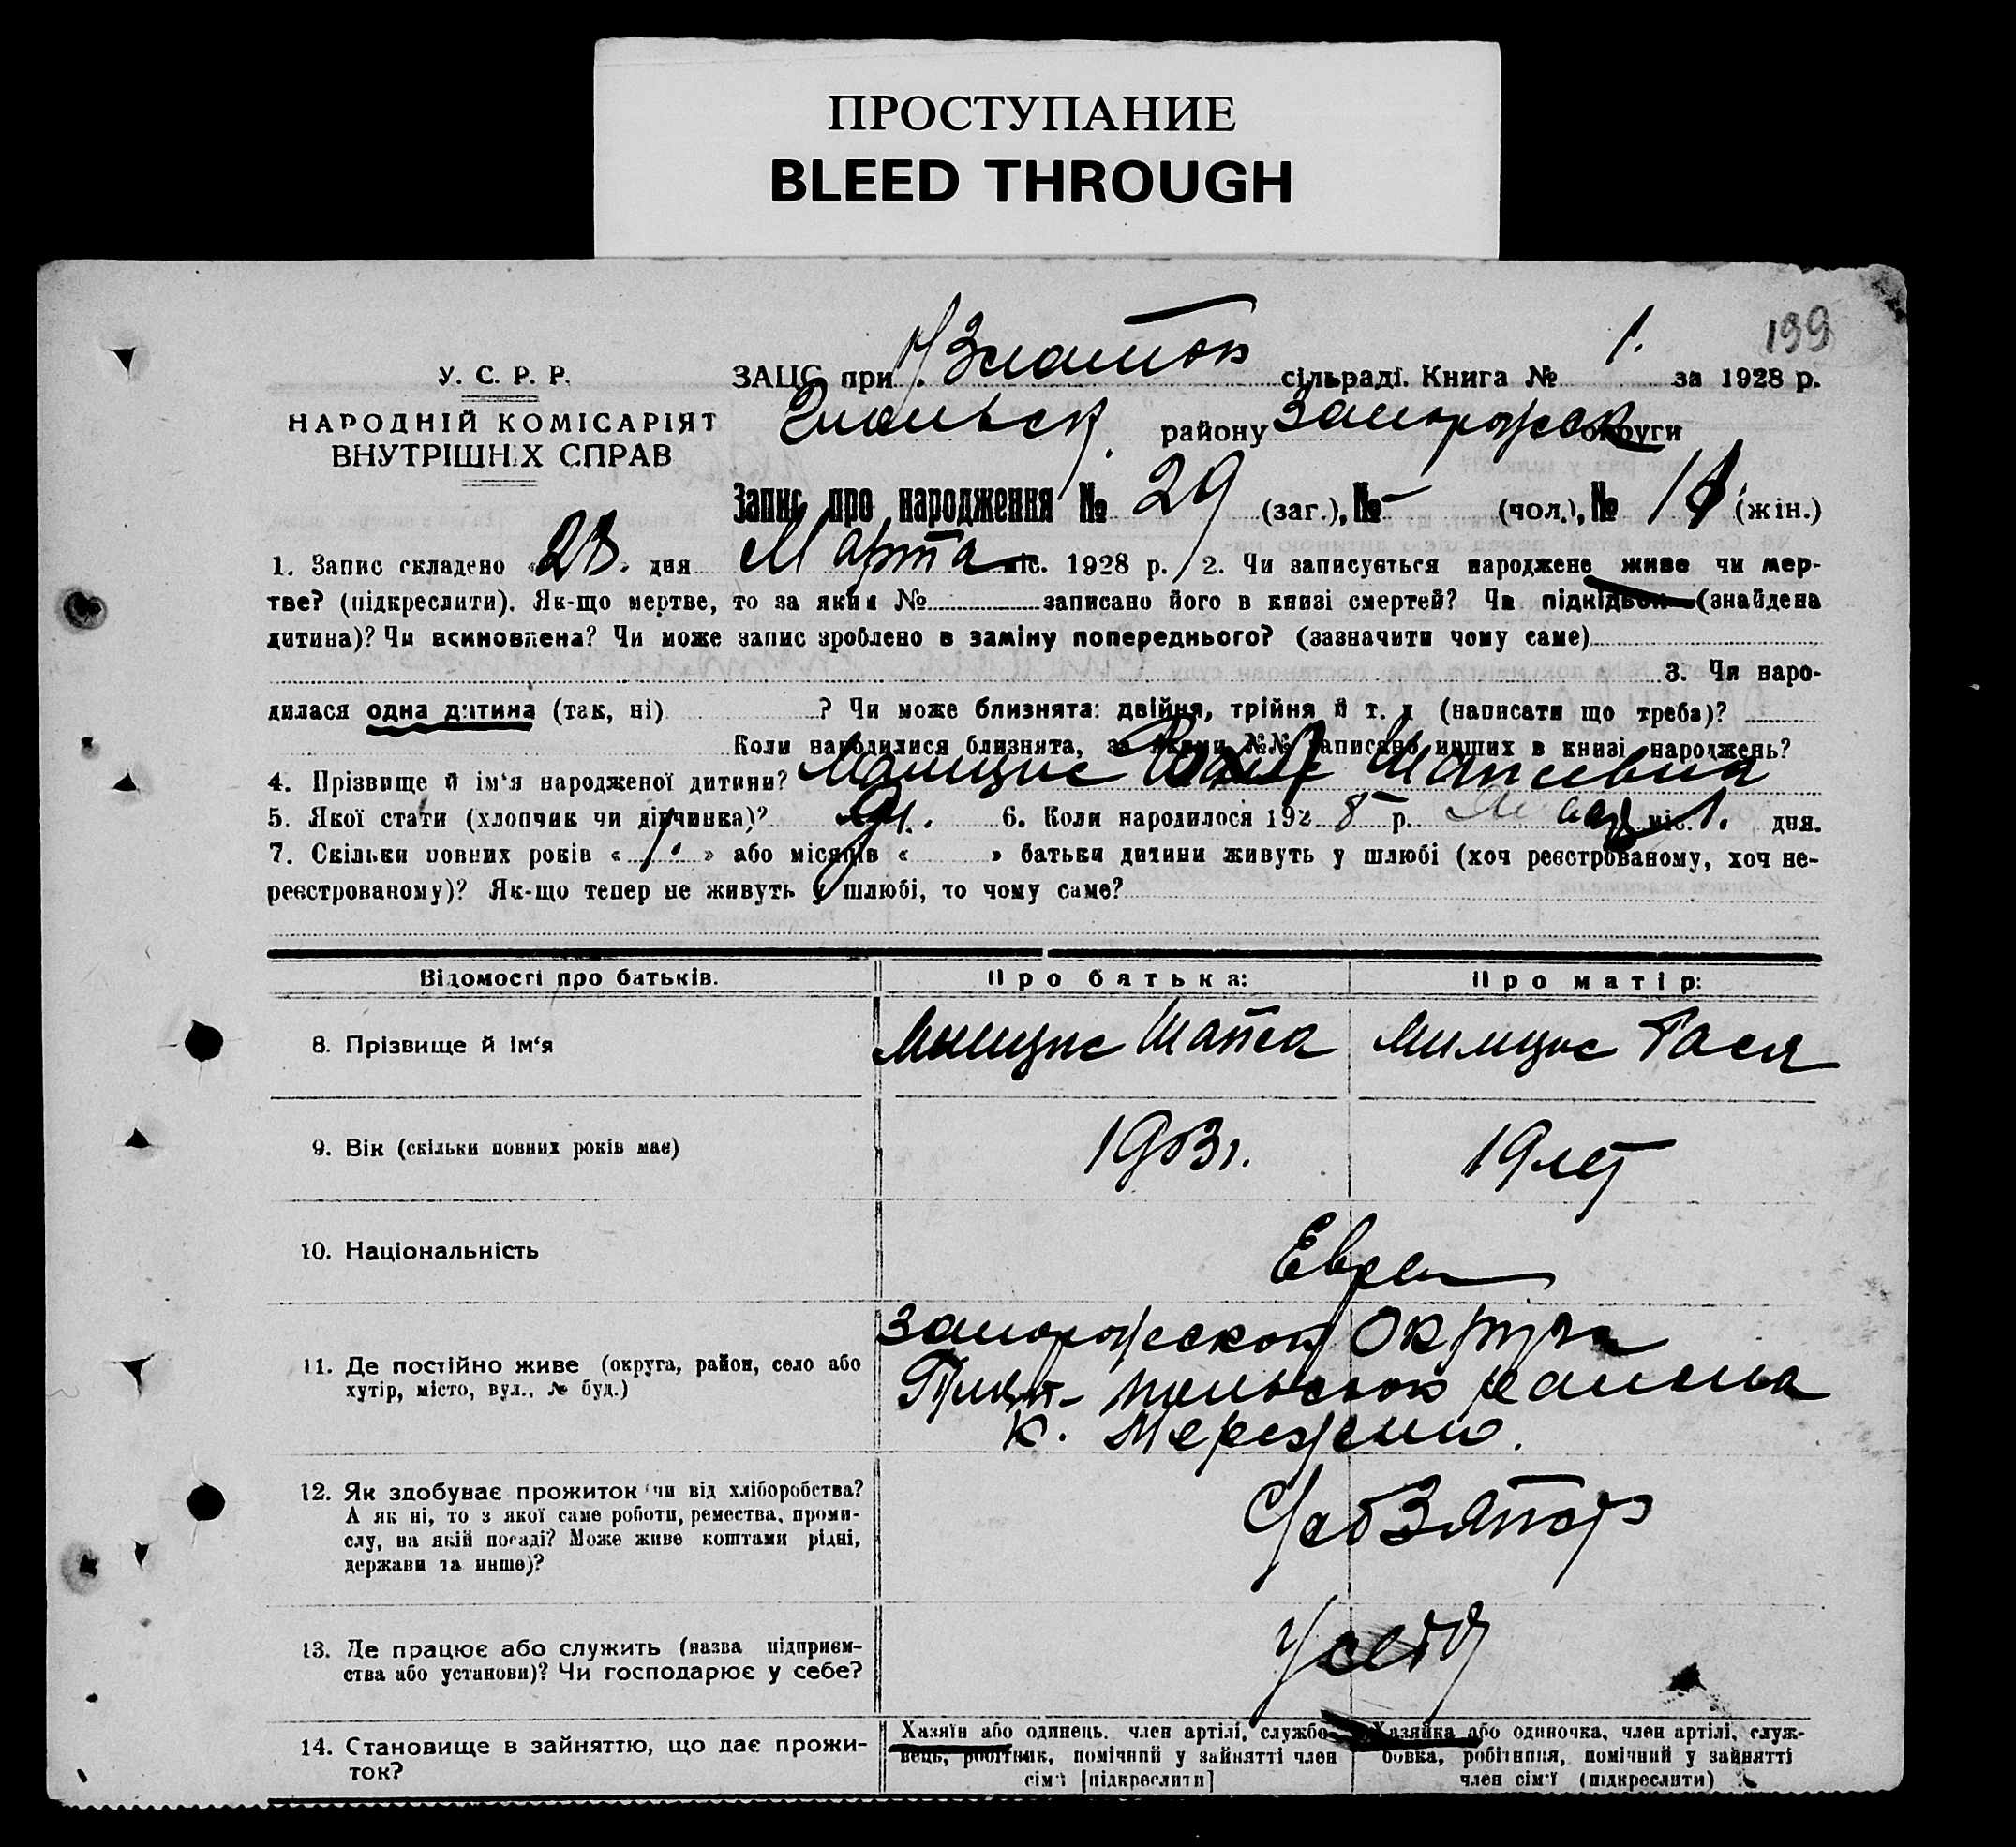 ПРОСТУПАНИЕ
BLEED THROUGH
199
У. С. Р. Р.
НАРОДНІЙ КОМІСАРІЯТ
ВНУТРІШНІХ СПРАВ
ЗАЦС при сільраді. Книга № 1. за 1928 р.
району Запорожск округи
Запис про народження № 29 (заг.), № – (чол.), № (жін.)
1. Запис складено « 23 » дня Марта міс. 1928 р. 2. Чи записується народжене живе чи мер-
тве? (підкреслити). Як-що мертве, то за яким № записано його в книзі смертей? Чи підкідьок (знайдена
дитина)? Чи всиновлена? Чи може запис зроблено в заміну попереднього? (зазначити чому саме)
3. Чи наро-
дилася одна дитина (так, ні) ? Чи може близнята: двійня, трійня й т. д (написати що треба)?
Коли народилися близнята, за якими №№ записано инших в книзі народжень?
4. Прізвище й ім'я народженої дитини?
5. Якої стати (хлопчик чи дівчинка)? 6. Коли народилося 192 8 р. міс. 1. дня.
7. Скільки повних років « 1 » або місяців « » батьки дитини живуть у шлюбі (хоч реєстрованому, хоч не-
реєстрованому)? Як-що тепер не живуть у шлюбі, то чому саме?
Відомості про батьків. Про батька: Про матір:
8. Прізвище й ім'я Шапса Тася
9. Вік (скільки повних років має) 1903г. 19 лет
10. Національність Евреи
11. Де постійно живе (округа, район, село або
хутір, місто, вул., № буд.)
Запорожской Округа
района
к. Межеричи.
12. Як здобуває прожиток чи від хліборобства?
А як ні, то з якої саме роботи, ремества, проми-
слу, на якій посаді? Може живе коштами рідні,
держави та инше)?
Хлебопаш
13. Де працює або служить (назва підприєм-
ства або установи)? Чи господарює у себе?
У себя
14. Становище в зайняттю, що дає прожи-
ток?
Хазяїн або одинець, член артілі, службо-
вець, робітник, помічний у зайнятті член
сім'ї [підкреслити]
Хазяйка або одиночка, член артілі, служ-
бовка, робітниця, помічний у зайнятті
член сім'ї (підкреслити)